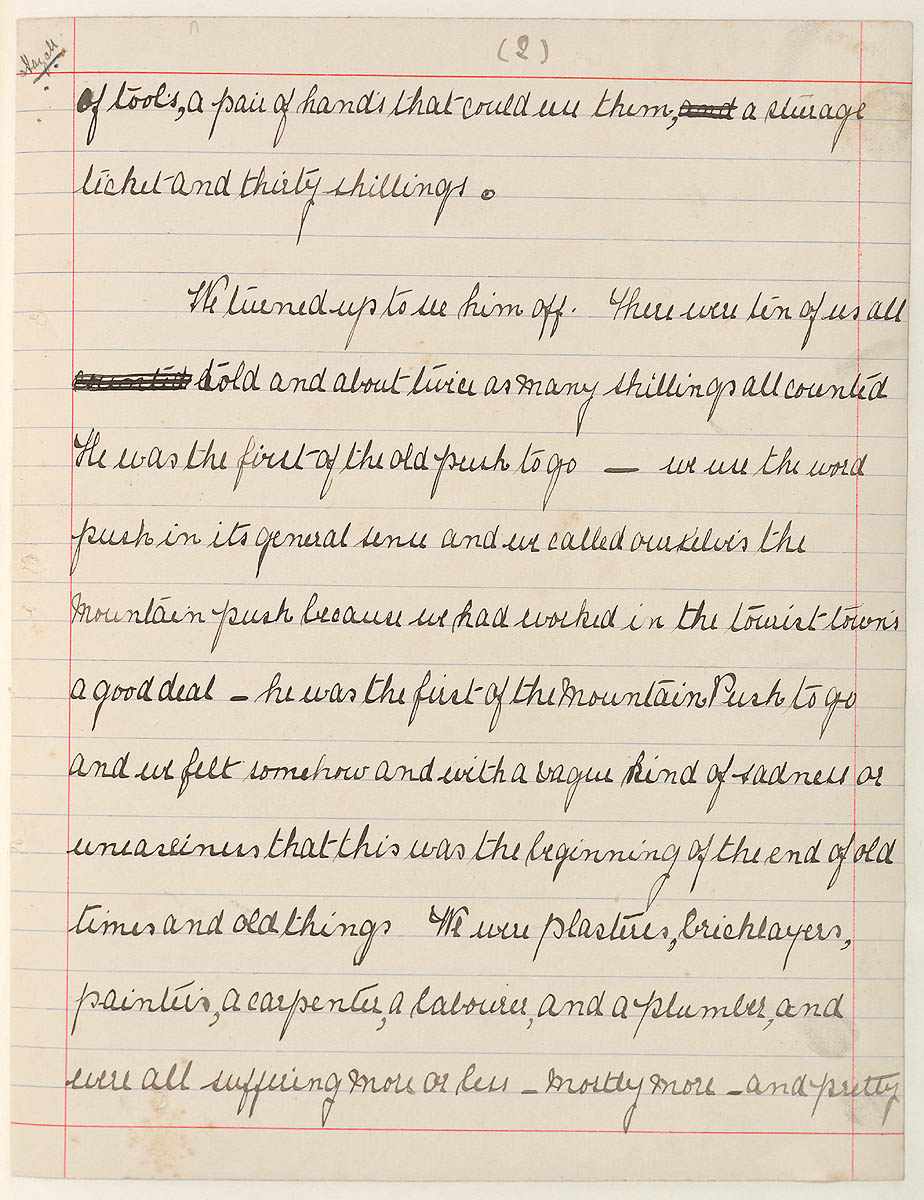 (2)
of tools, a pair of hands that could use them, and a steerage
ticket and thirty shillings.
We turned up to see him off. There were ten of us all
counted told and about twice as many shillings all counted
He was the first of the old push to go — we use the word
push in its general sense and we called ourselves the
Mountain push because we had worked in the tourist towns
a good deal – he was the first of the Mountain Push to go
and we felt somehow and with a vague kind of sadness or
uneasiness that this was the beginning of the end of old
times and old things We were plasteres, bricklayers,
painters, a carpenter, a labourer, and a plumber, and
were all suffering more or less – mostly more – and pretty